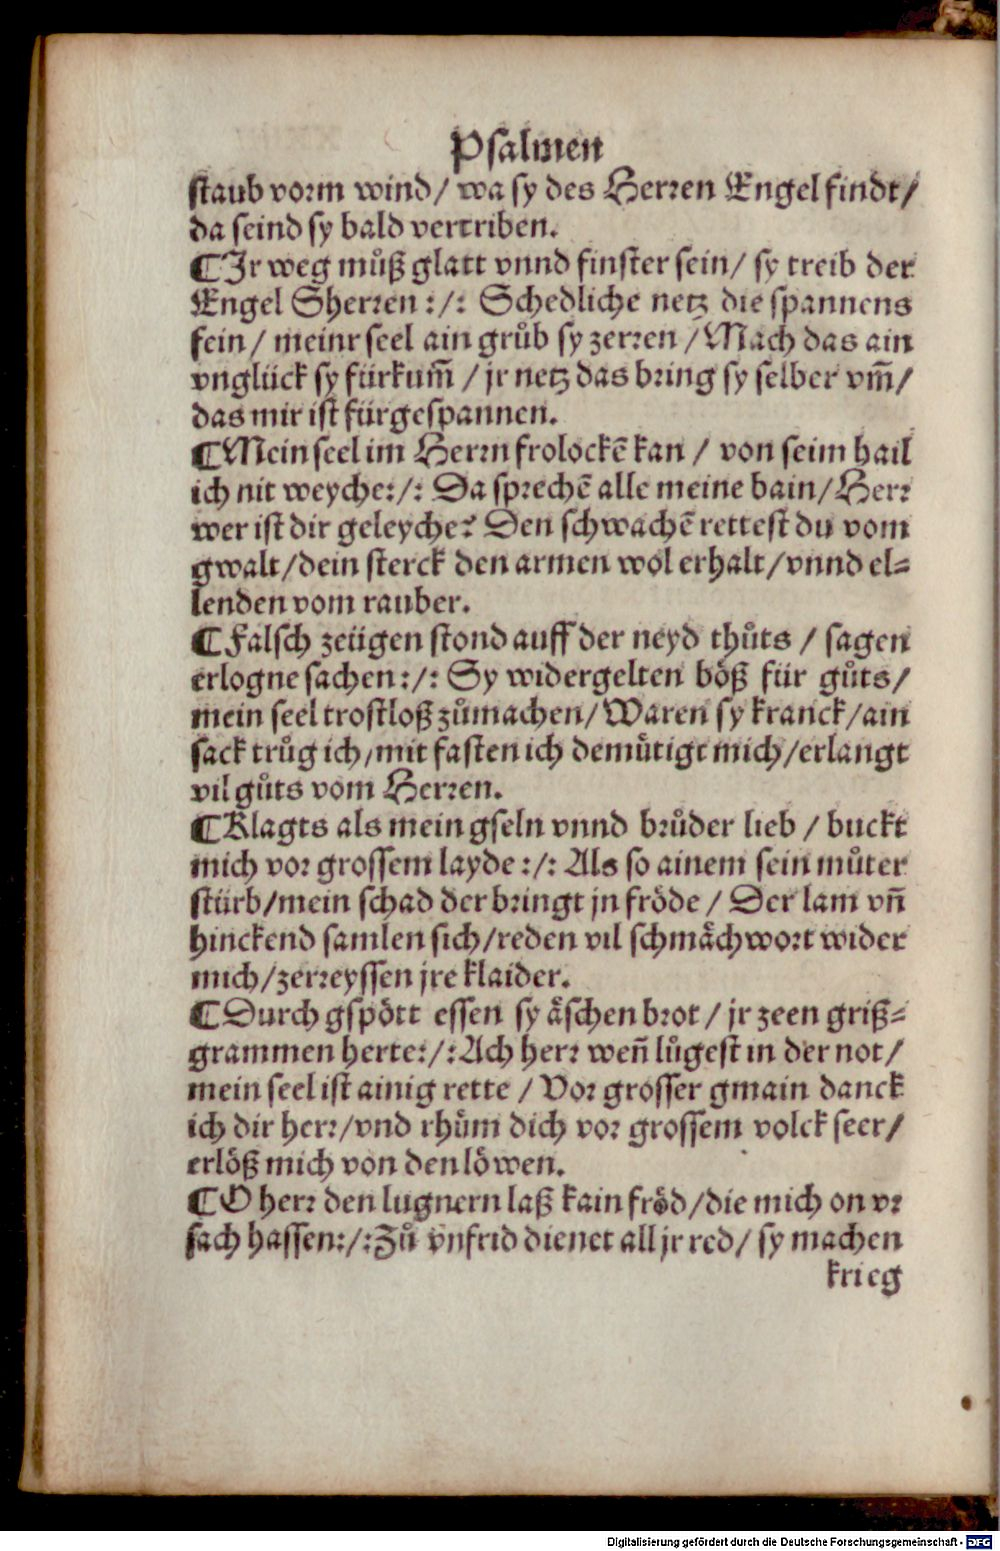 Psalmen
staub vorm wind/ wa sy des Herren Engel findt/
da seind sy bald vertriben.
¶Jr weg muͦß glatt vnnd finster sein/ sy treib der
Engel Sherren :/: Schedliche netz die spannens
fein/ meinr seel ain gruͦb sy zerren /Mach das ain
vnglück sy fürkum̃ /jr netz das bring sy selber vm̃/
das mir ist fürgespannen.
¶Mein seel im Herrn frolockẽ kan / von seim hail
ich nit weyche:/: Da sprechẽ alle meine bain/Herr
wer ist dir geleyche? Den schwachẽ rettest du vom
gwalt/dein sterck den armen wol erhalt/vnnd el⸗
lenden vom rauber.
¶Falsch zeügen stond auff der neyd thuͦts / sagen
erlogne sachen:/: Sy widergelten böß für guͦts/
mein seel trostloß zuͦmachen/Waren sy kranck/ain
sack truͦg ich/mit fasten ich demuͤtigt mich/erlangt
vil guͦts vom Herren.
¶Klagts als mein gseln vnnd bruͦder lieb / buckt
mich vor grossem layde :/: Als so ainem sein muͦter
stürb/mein schad der bringt jn fröde / Der lam vn̄
hinckend samlen sich/reden vil schmaͤchwort wider
mich/zerreyssen jre klaider.
¶Durch gspött essen sy aͤschen brot/ jr zeen griß⸗
grammen herte:/:Ach herr wen̄ luͦgest in der not/
mein seel ist ainig rette / Vor grosser gmain danck
ich dir herr/vnd rhuͤm dich vor grossem volck seer/
erlöß mich von den löwen.
¶O herr den lugnern laß kain fröd/die mich on vr
sach hassen:/:Zuͦ vnfrid dienet all jr red/ sy machen
krieg
Digitalisierung gefördert durch die Deutsche Forschungsgemeinschaft - DFG